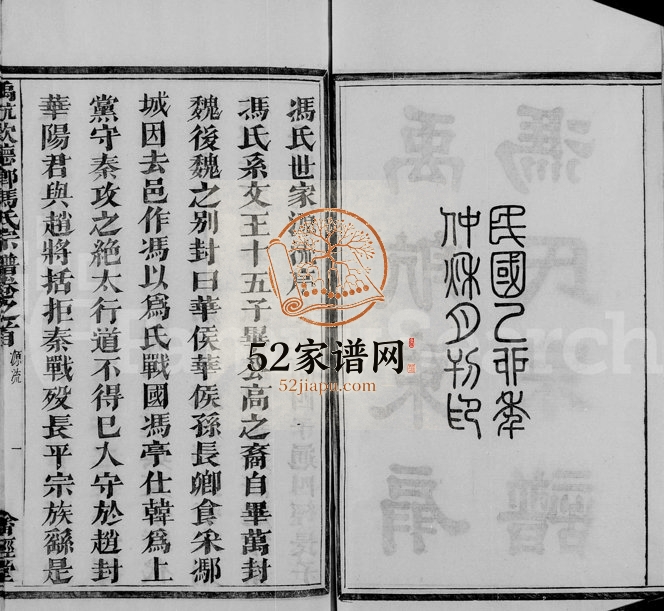 民國乙亥年
仲秋月刊印
馮氏世家源流序
馮氏系文王十五子畢公高之裔自畢萬封
魏後魏之別封曰華侯華侯孫長卿食采鄢
城因去邑作馮以爲氏戰國馮亭仕韓爲上
黨守秦攻之絶太行道不得已入守於趙封
華陽君與趙將括拒秦戰歿長平宗族繇是
馮氏宗譜卷之首
源流
一
52家谱网
52jiapu.com